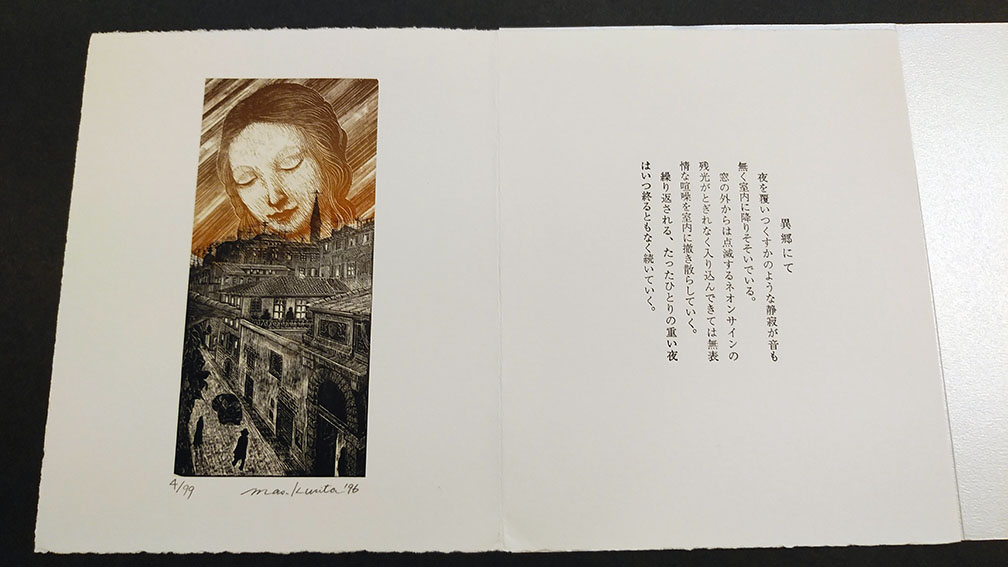 4/99
mas. Kurita '96
異郷にて
夜を覆いつくすかのような静寂が音も
無く室内に降りそそいでいる。
窓の外からは点滅するネオンサインの
残光がとぎれなく入り込んできては無表
情な喧噪を室内に撒き散らしていく。
繰り返される、たったひとりの重い夜
はいつ終るともなく続いていく。